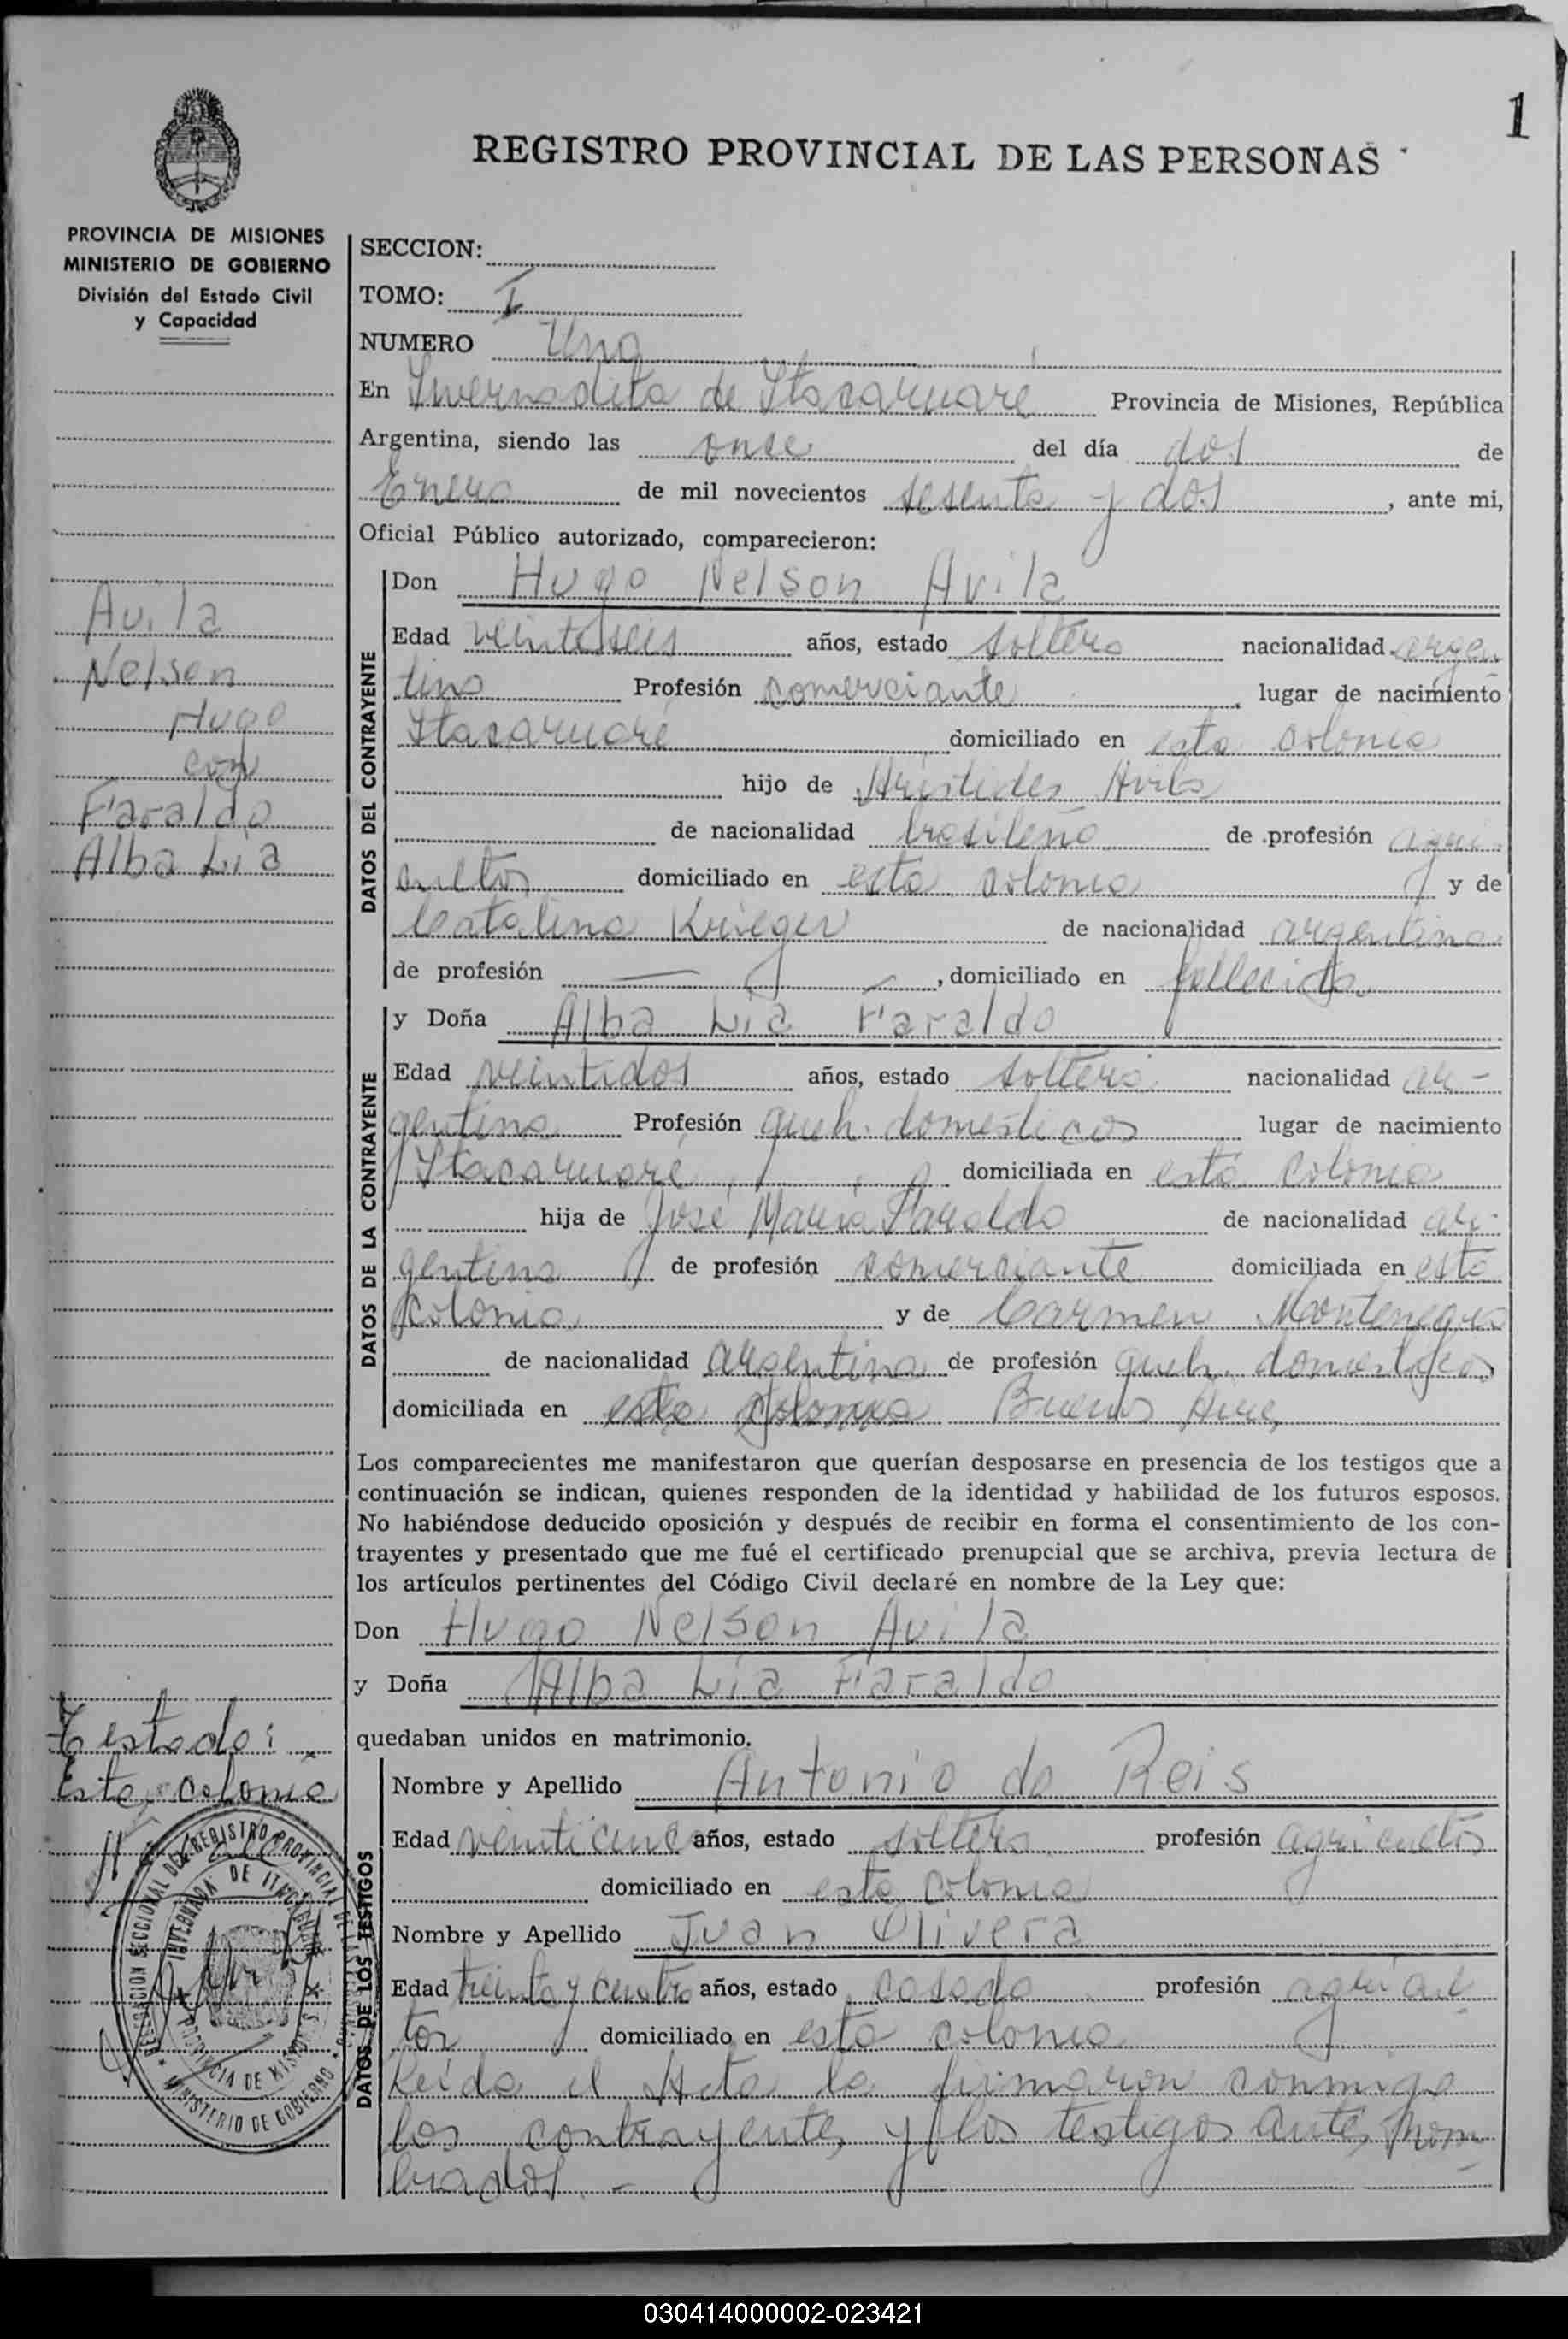 1
REGISTRO PROVINCIAL DE LAS PERSONAS
PROVINCIA DE MISIONES
MINISTERIO DE GOBIERNO
División del Estado Civil
y Capacidad
Avila
Nelson
Hugo
con
Faraldo
Alba Lia
Testado:
Esta colonia
SECCION:
TOMO: I
NUMERO Uno
En Invernadita de Itacaruare Provincia de Misiones, República
Argentina, siendo las once del día dos de
Enero de mil novecientos sesenta y dos, ante mi,
Oficial Público autorizado, comparecieron:
DATOS DEL CONTRAYENTE
Don Hugo Nelson Avila
Edad veinteseis años, estado soltero nacionalidad argen
tino Profesión comerciante, lugar de nacimiento
Itacaruaré domiciliado en esta colonia
hijo de Aristides Avila
de nacionalidad brasileño de profesión agri
cultor domiciliado en esta colonia y de
Catalina Krieger de nacionalidad argentina
de profesión —, domiciliado en fallecida
DATOS DE LA CONTRAYENTE
y Doña Alba Lia Faraldo
Edad veintidos años, estado soltera nacionalidad ar-
gentina Profesión queh. domesticos lugar de nacimiento
Itacaruaré domiciliada en esta colonia
hija de José Maria Faraldo de nacionalidad ar-
gentino de profesión comerciante domiciliada en esta
colonia y de Carmen Montenegro
de nacionalidad argentina de profesión queh. domesticos
domiciliada en esta colonia Buenos Aires
Los comparecientes me manifestaron que querían desposarse en presencia de los testigos que a
continuación se indican, quienes responden de la identidad y habilidad de los futuros esposos.
No habiéndose deducido oposición y después de recibir en forma el consentimiento de los con-
trayentes y presentado que me fué el certificado prenupcial que se archiva, previa lectura de
los artículos pertinentes del Código Civil declaré en nombre de la Ley que:
Don Hugo Nelson Avila
y Doña Alba Lia Faraldo
quedaban unidos en matrimonio.
DATOS DE LOS TESTIGOS
Nombre y Apellido Antonio do Reis
Edad veinticinco años, estado soltero profesión agricultor
domiciliado en esta colonia
Nombre y Apellido Juan Olivera
Edad treinta y cuatro años, estado casado profesión agricul
tor domiciliado en esta colonia
Leida el Acta la firmaron conmigo
los contrayentes y los testigos antes nom
brados.-
DELEGACION SECCIONAL DEL REGISTRO PROVINCIAL DE LAS PERSONAS
INVERNADA DE ITACARUARE
PROVINCIA DE MISIONES
MINISTERIO DE GOBIERNO
030414000002-023421